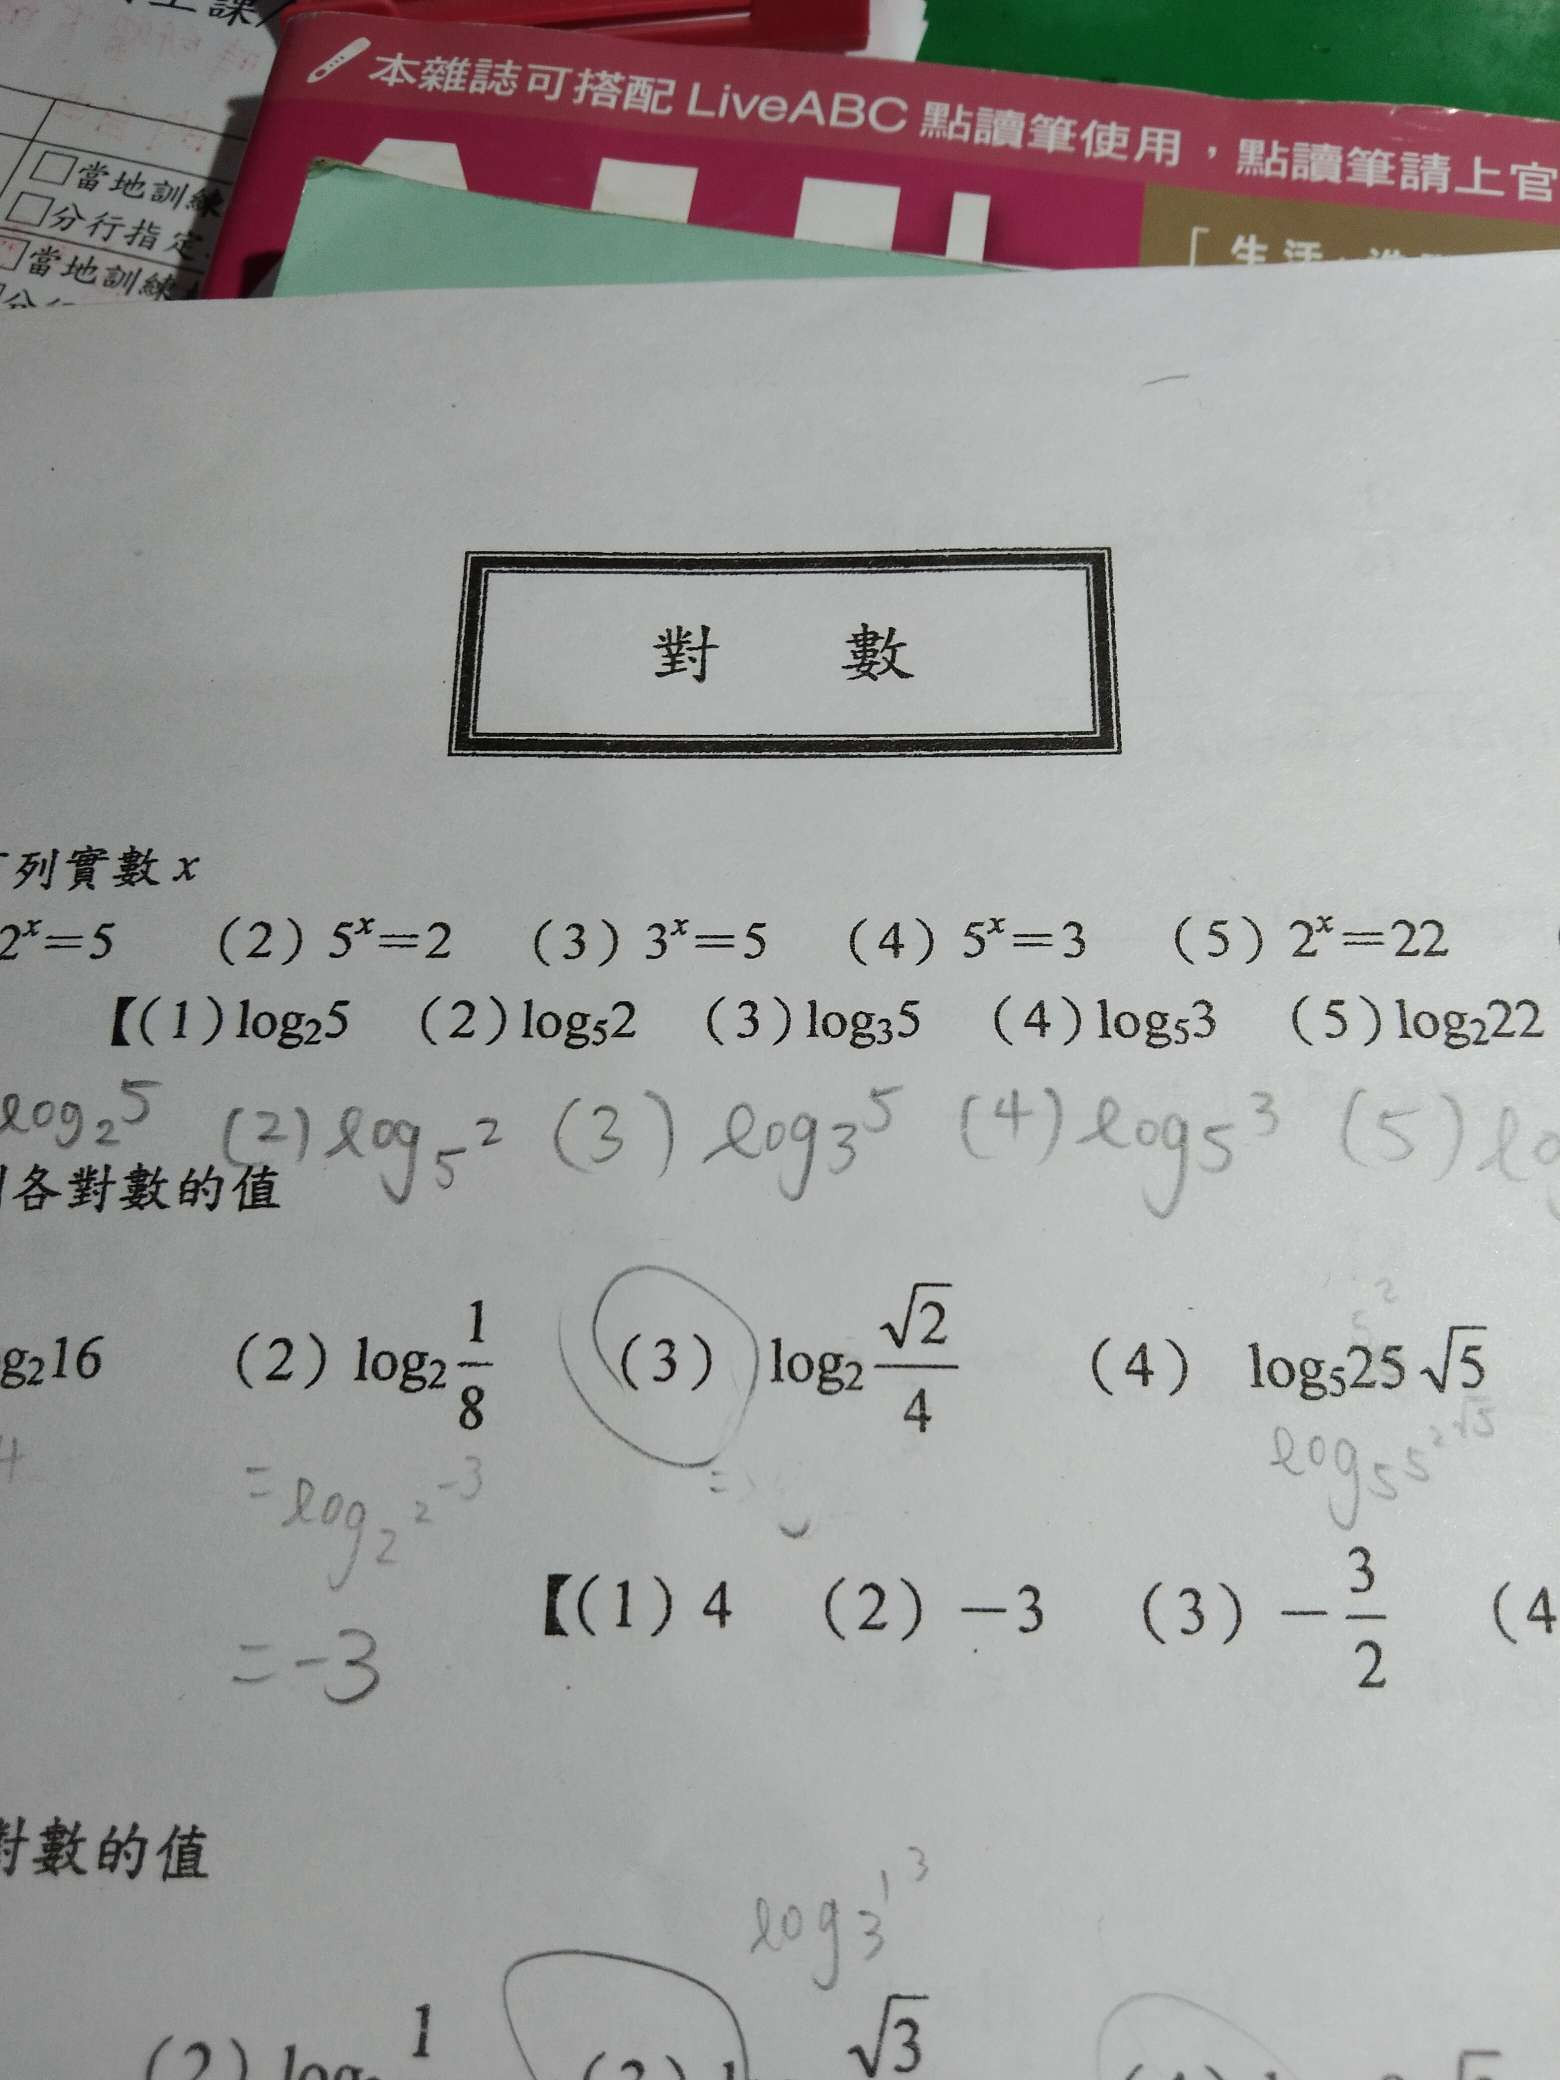 上課
本雜誌可搭配 LiveABC 點讀筆使用，點讀筆請上官
□當地訓練
□分行指定
□當地訓練
「生活
對 數
列實數 x
2ˣ=5 (2) 5ˣ=2 (3) 3ˣ=5 (4) 5ˣ=3 (5) 2ˣ=22
【(1) log₂5 (2) log₅2 (3) log₃5 (4) log₅3 (5) log₂22
log₂5 (2) log₅2 (3) log₃5 (4) log₅3 (5) lo
各對數的值
g₂16 (2) log₂ 1/8 (3) log₂ √2/4 (4) log₅25√5
5²
4 = log₂2⁻³ = log₅5²√5
= -3
【(1) 4 (2) -3 (3) -3/2 (4
對數的值
log₃1³
(2) log 1 (3) √3